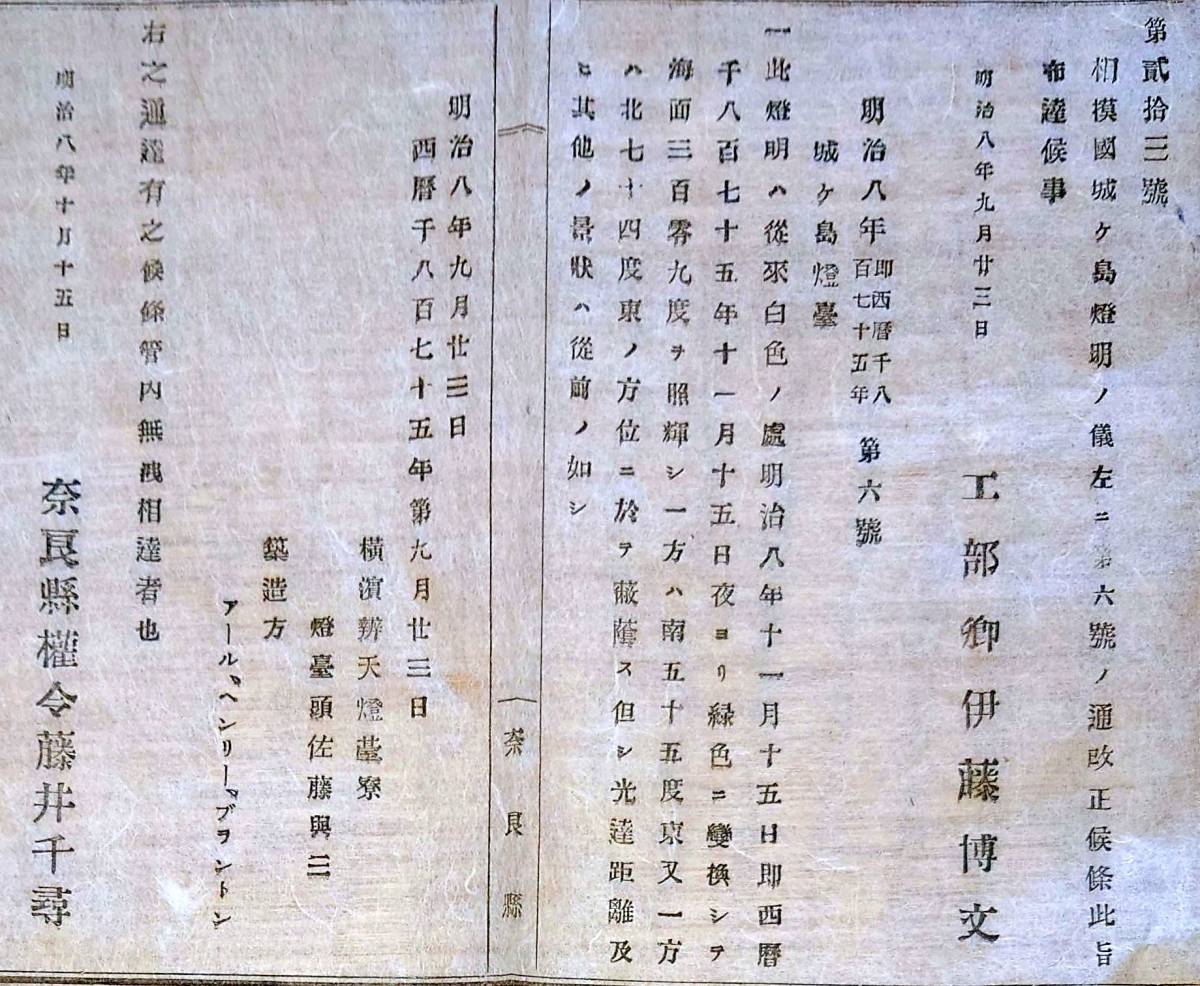 第貳拾三號
相摸國城ケ島燈明ノ儀左ニ第六號ノ通改正候條此旨
布達候事
明治八年九月廿三日
工部卿伊藤博文
明治八年即西曆千八百七十五年 第六號
城ケ島燈臺
一此燈明ハ從來白色ノ處明治八年十一月十五日即西曆
千八百七十五年十一月十五日夜ヨリ綠色ニ變換シテ
海面三百零九度ヲ照輝シ一方ハ南五十五度東又一方
ハ北七十四度東ノ方位ニ於テ蔽蔭ス但シ光達距離及
ヒ其他ノ景狀ハ從前ノ如シ
奈良縣
明治八年九月廿三日
西曆千八百七十五年第九月廿三日
橫濱辨天燈臺寮
燈臺頭佐藤與三
築造方
アール、ヘンリー、ブラントン
右之通達有之候條管內無洩相達者也
明治八年十月十五日
奈良縣權令藤井千尋